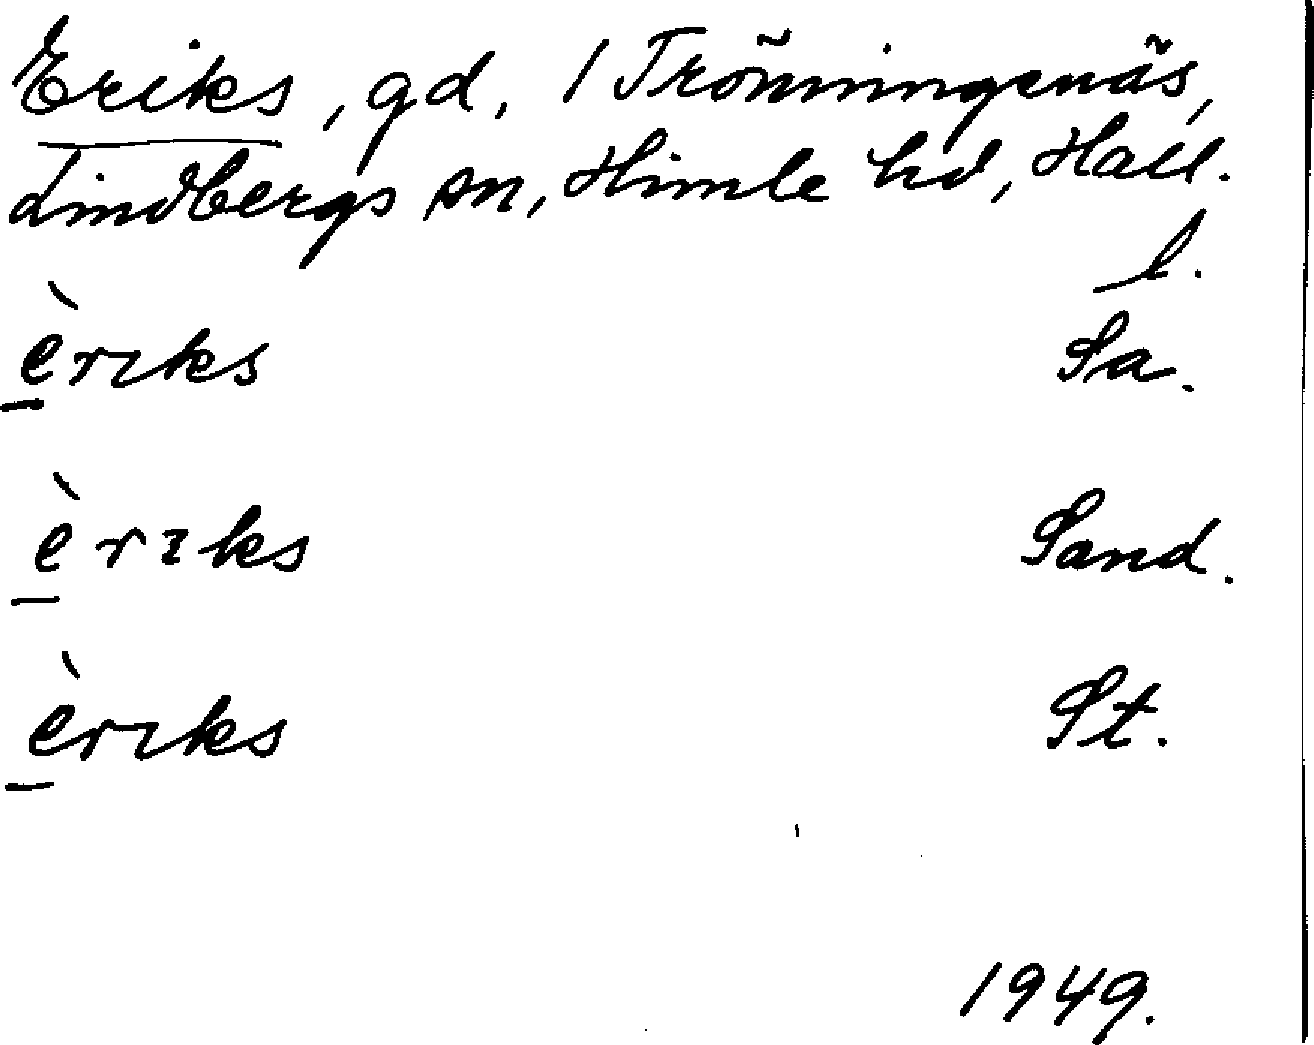 Eriks, gd, 1 Trönningenäs,
Lindbergs sn, Himle hd, Hall.
l.
è̲rıks Sa.
è̲rıks Sand.
è̲rıks St.
1949.